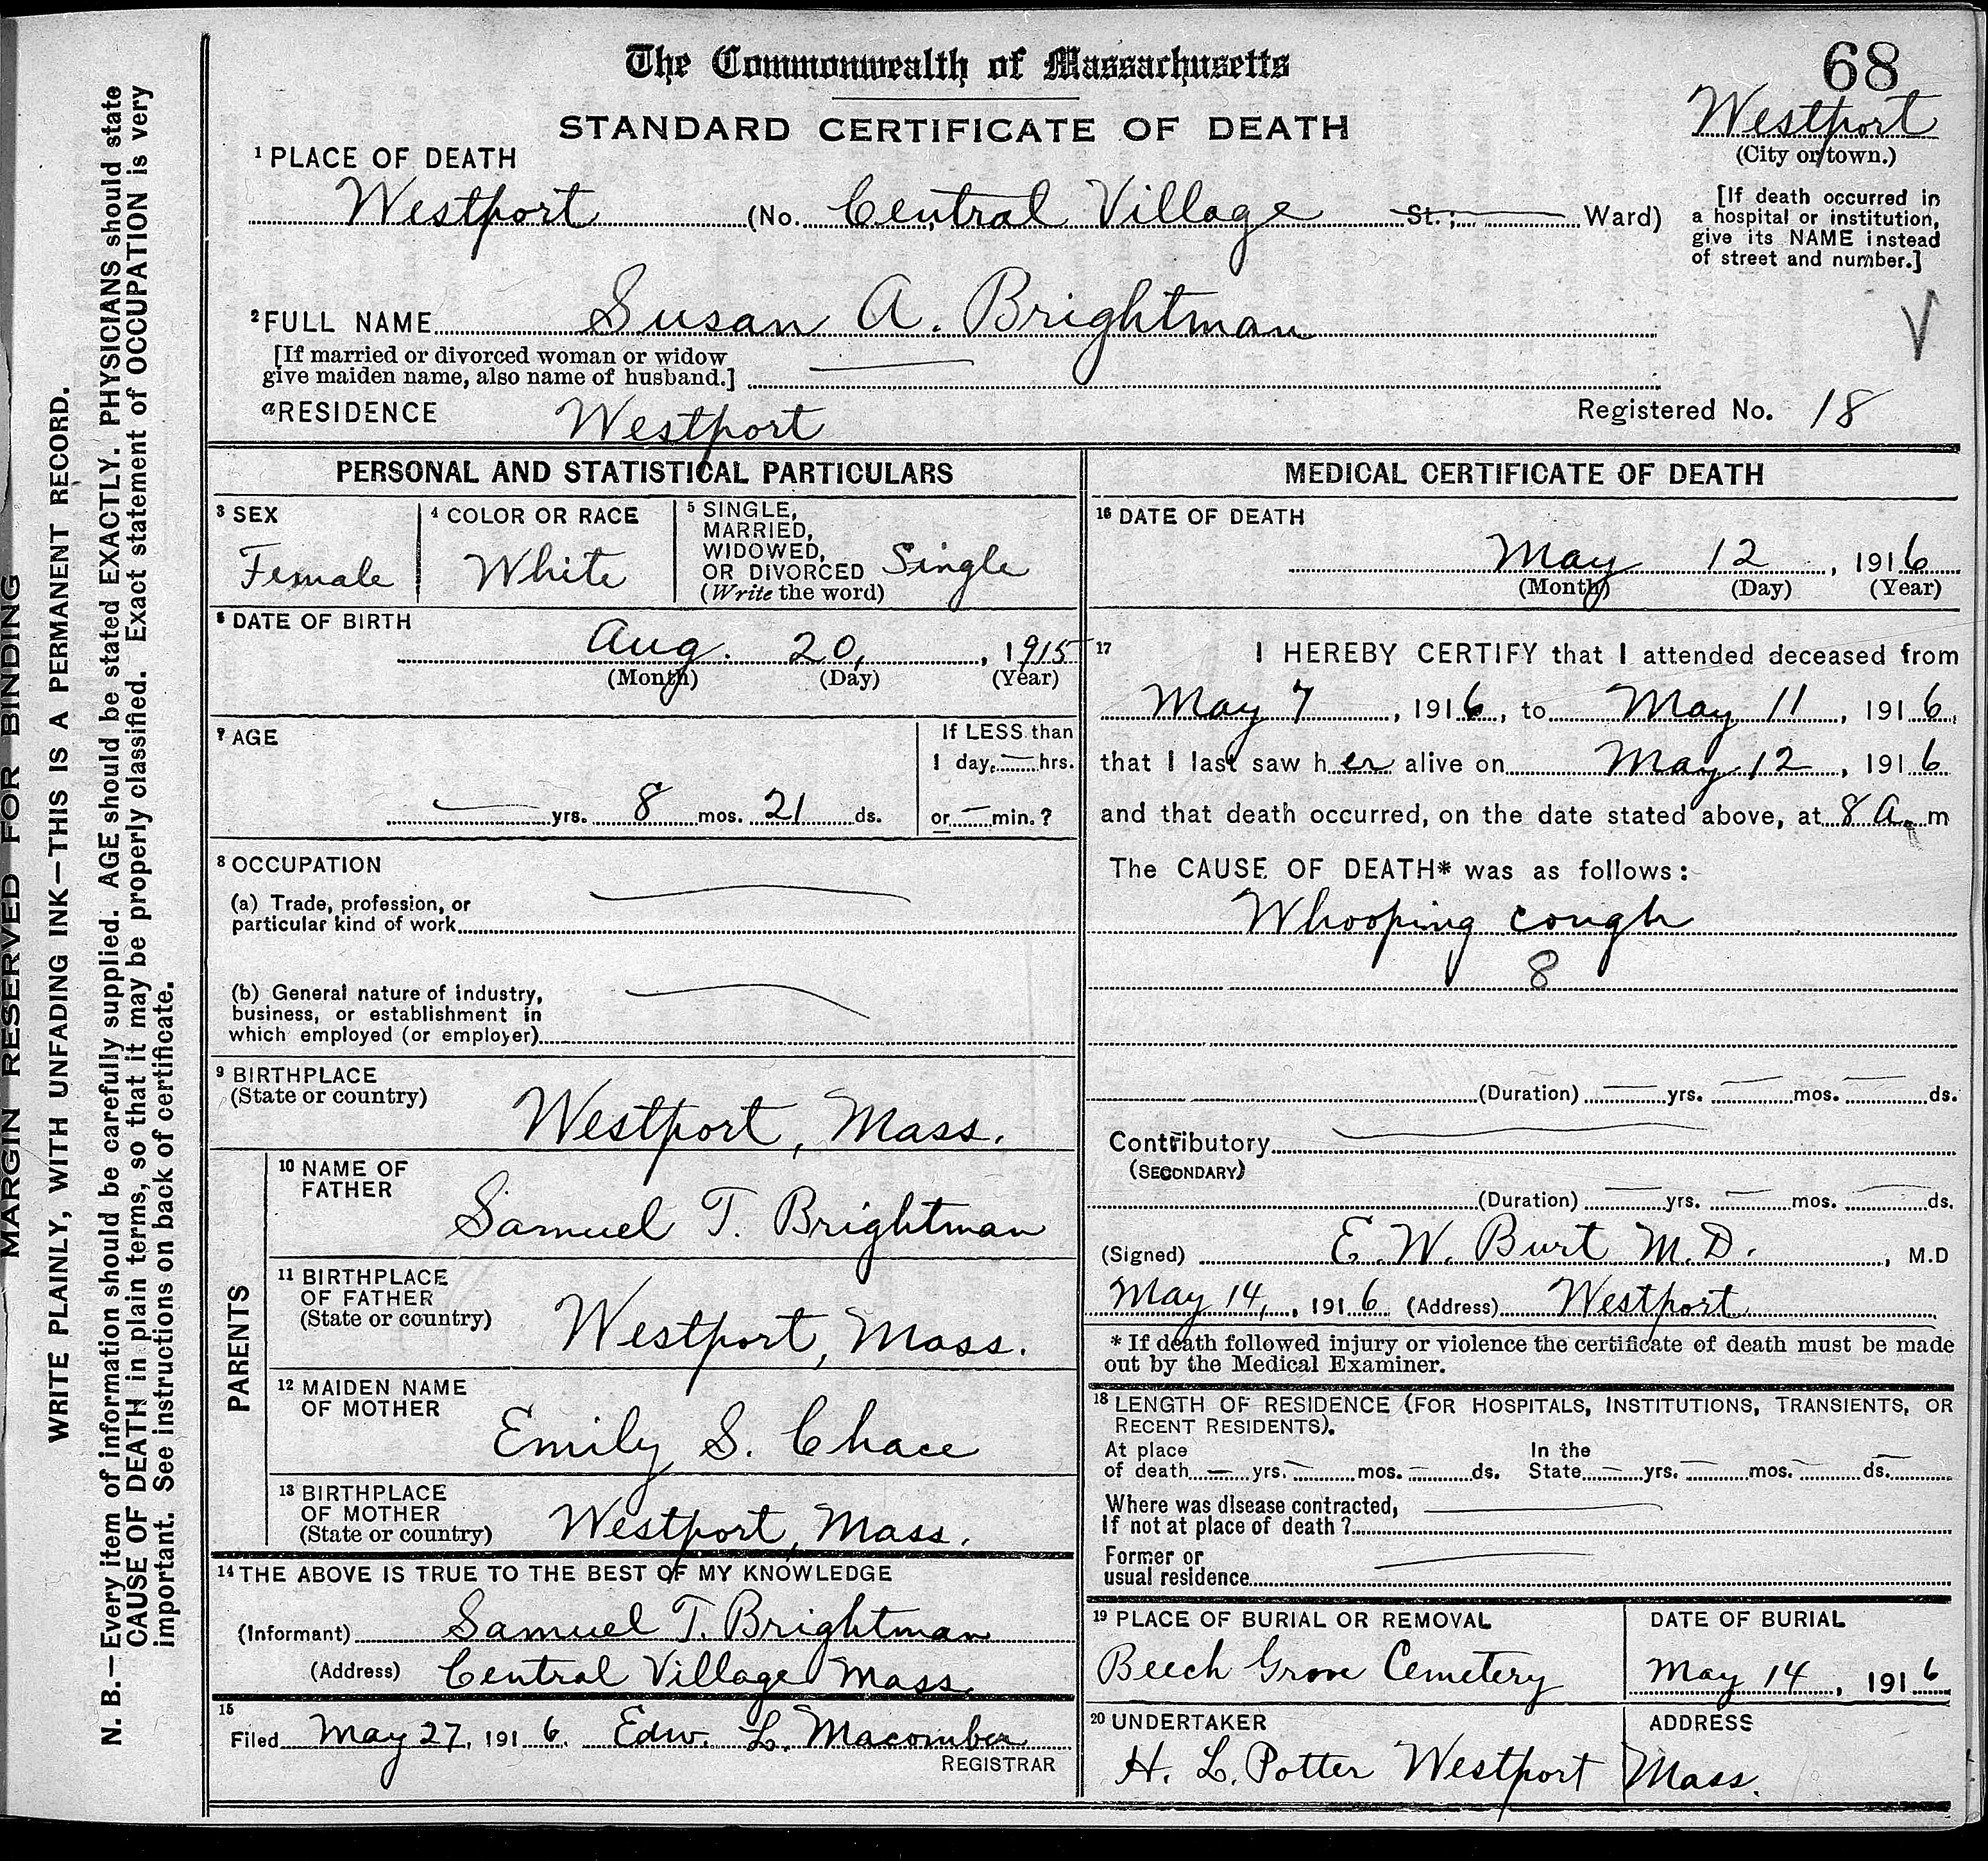 The Commonwealth of Massachusetts
68
STANDARD CERTIFICATE OF DEATH
Westport
(City or town.)
1 PLACE OF DEATH
Westport (No. Central Village St.; Ward)
[If death occurred in
a hospital or institution,
give its NAME instead
of street and number.]
2 FULL NAME Susan A. Brightman
[If married or divorced woman or widow
give maiden name, also name of husband.]
a RESIDENCE Westport
Registered No. 18
PERSONAL AND STATISTICAL PARTICULARS
3 SEX
Female
4 COLOR OR RACE
White
5 SINGLE,
MARRIED,
WIDOWED,
OR DIVORCED
(Write the word)
Single
6 DATE OF BIRTH
Aug. 20, , 1915
(Month) (Day) (Year)
7 AGE
yrs. 8 mos. 21 ds.
If LESS than
1 day, hrs.
or min.?
8 OCCUPATION
(a) Trade, profession, or
particular kind of work
(b) General nature of industry,
business, or establishment in
which employed (or employer)
9 BIRTHPLACE
(State or country)
Westport, Mass.
PARENTS
10 NAME OF
FATHER
Samuel T. Brightman
11 BIRTHPLACE
OF FATHER
(State or country)
Westport, Mass.
12 MAIDEN NAME
OF MOTHER
Emily S. Chace
13 BIRTHPLACE
OF MOTHER
(State or country)
Westport, Mass.
14 THE ABOVE IS TRUE TO THE BEST OF MY KNOWLEDGE
(Informant) Samuel T. Brightman
(Address) Central Village Mass.
15
Filed May 27, 1916. Edw. L. Macomber
REGISTRAR
MEDICAL CERTIFICATE OF DEATH
16 DATE OF DEATH
May 12 , 1916
(Month) (Day) (Year)
17 I HEREBY CERTIFY that I attended deceased from
May 7 , 1916, to May 11 , 1916,
that I last saw her alive on May 12 , 1916
and that death occurred, on the date stated above, at 8 A. m
The CAUSE OF DEATH* was as follows:
Whooping cough
8
(Duration) yrs. mos. ds.
Contributory
(SECONDARY)
(Duration) yrs. mos. ds.
(Signed) E. W. Burt M.D. , M.D
May 14, , 1916 (Address) Westport
* If death followed injury or violence the certificate of death must be made
out by the Medical Examiner.
18 LENGTH OF RESIDENCE (FOR HOSPITALS, INSTITUTIONS, TRANSIENTS, OR
RECENT RESIDENTS).
At place
of death yrs. mos. ds.
In the
State yrs. mos. ds.
Where was disease contracted,
If not at place of death ?
Former or
usual residence
19 PLACE OF BURIAL OR REMOVAL
Beech Grove Cemetery
DATE OF BURIAL
May 14 , 1916
20 UNDERTAKER
H. L. Potter Westport
ADDRESS
Mass.
MARGIN RESERVED FOR BINDING
WRITE PLAINLY, WITH UNFADING INK—THIS IS A PERMANENT RECORD.
N. B.—Every item of information should be carefully supplied. AGE should be stated EXACTLY. PHYSICIANS should state
CAUSE OF DEATH in plain terms, so that it may be properly classified. Exact statement of OCCUPATION is very
important. See instructions on back of certificate.